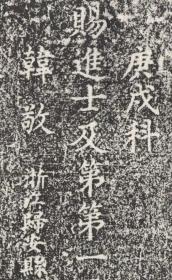 庚戌科
賜進士及第第一
韓敬浙江歸安縣